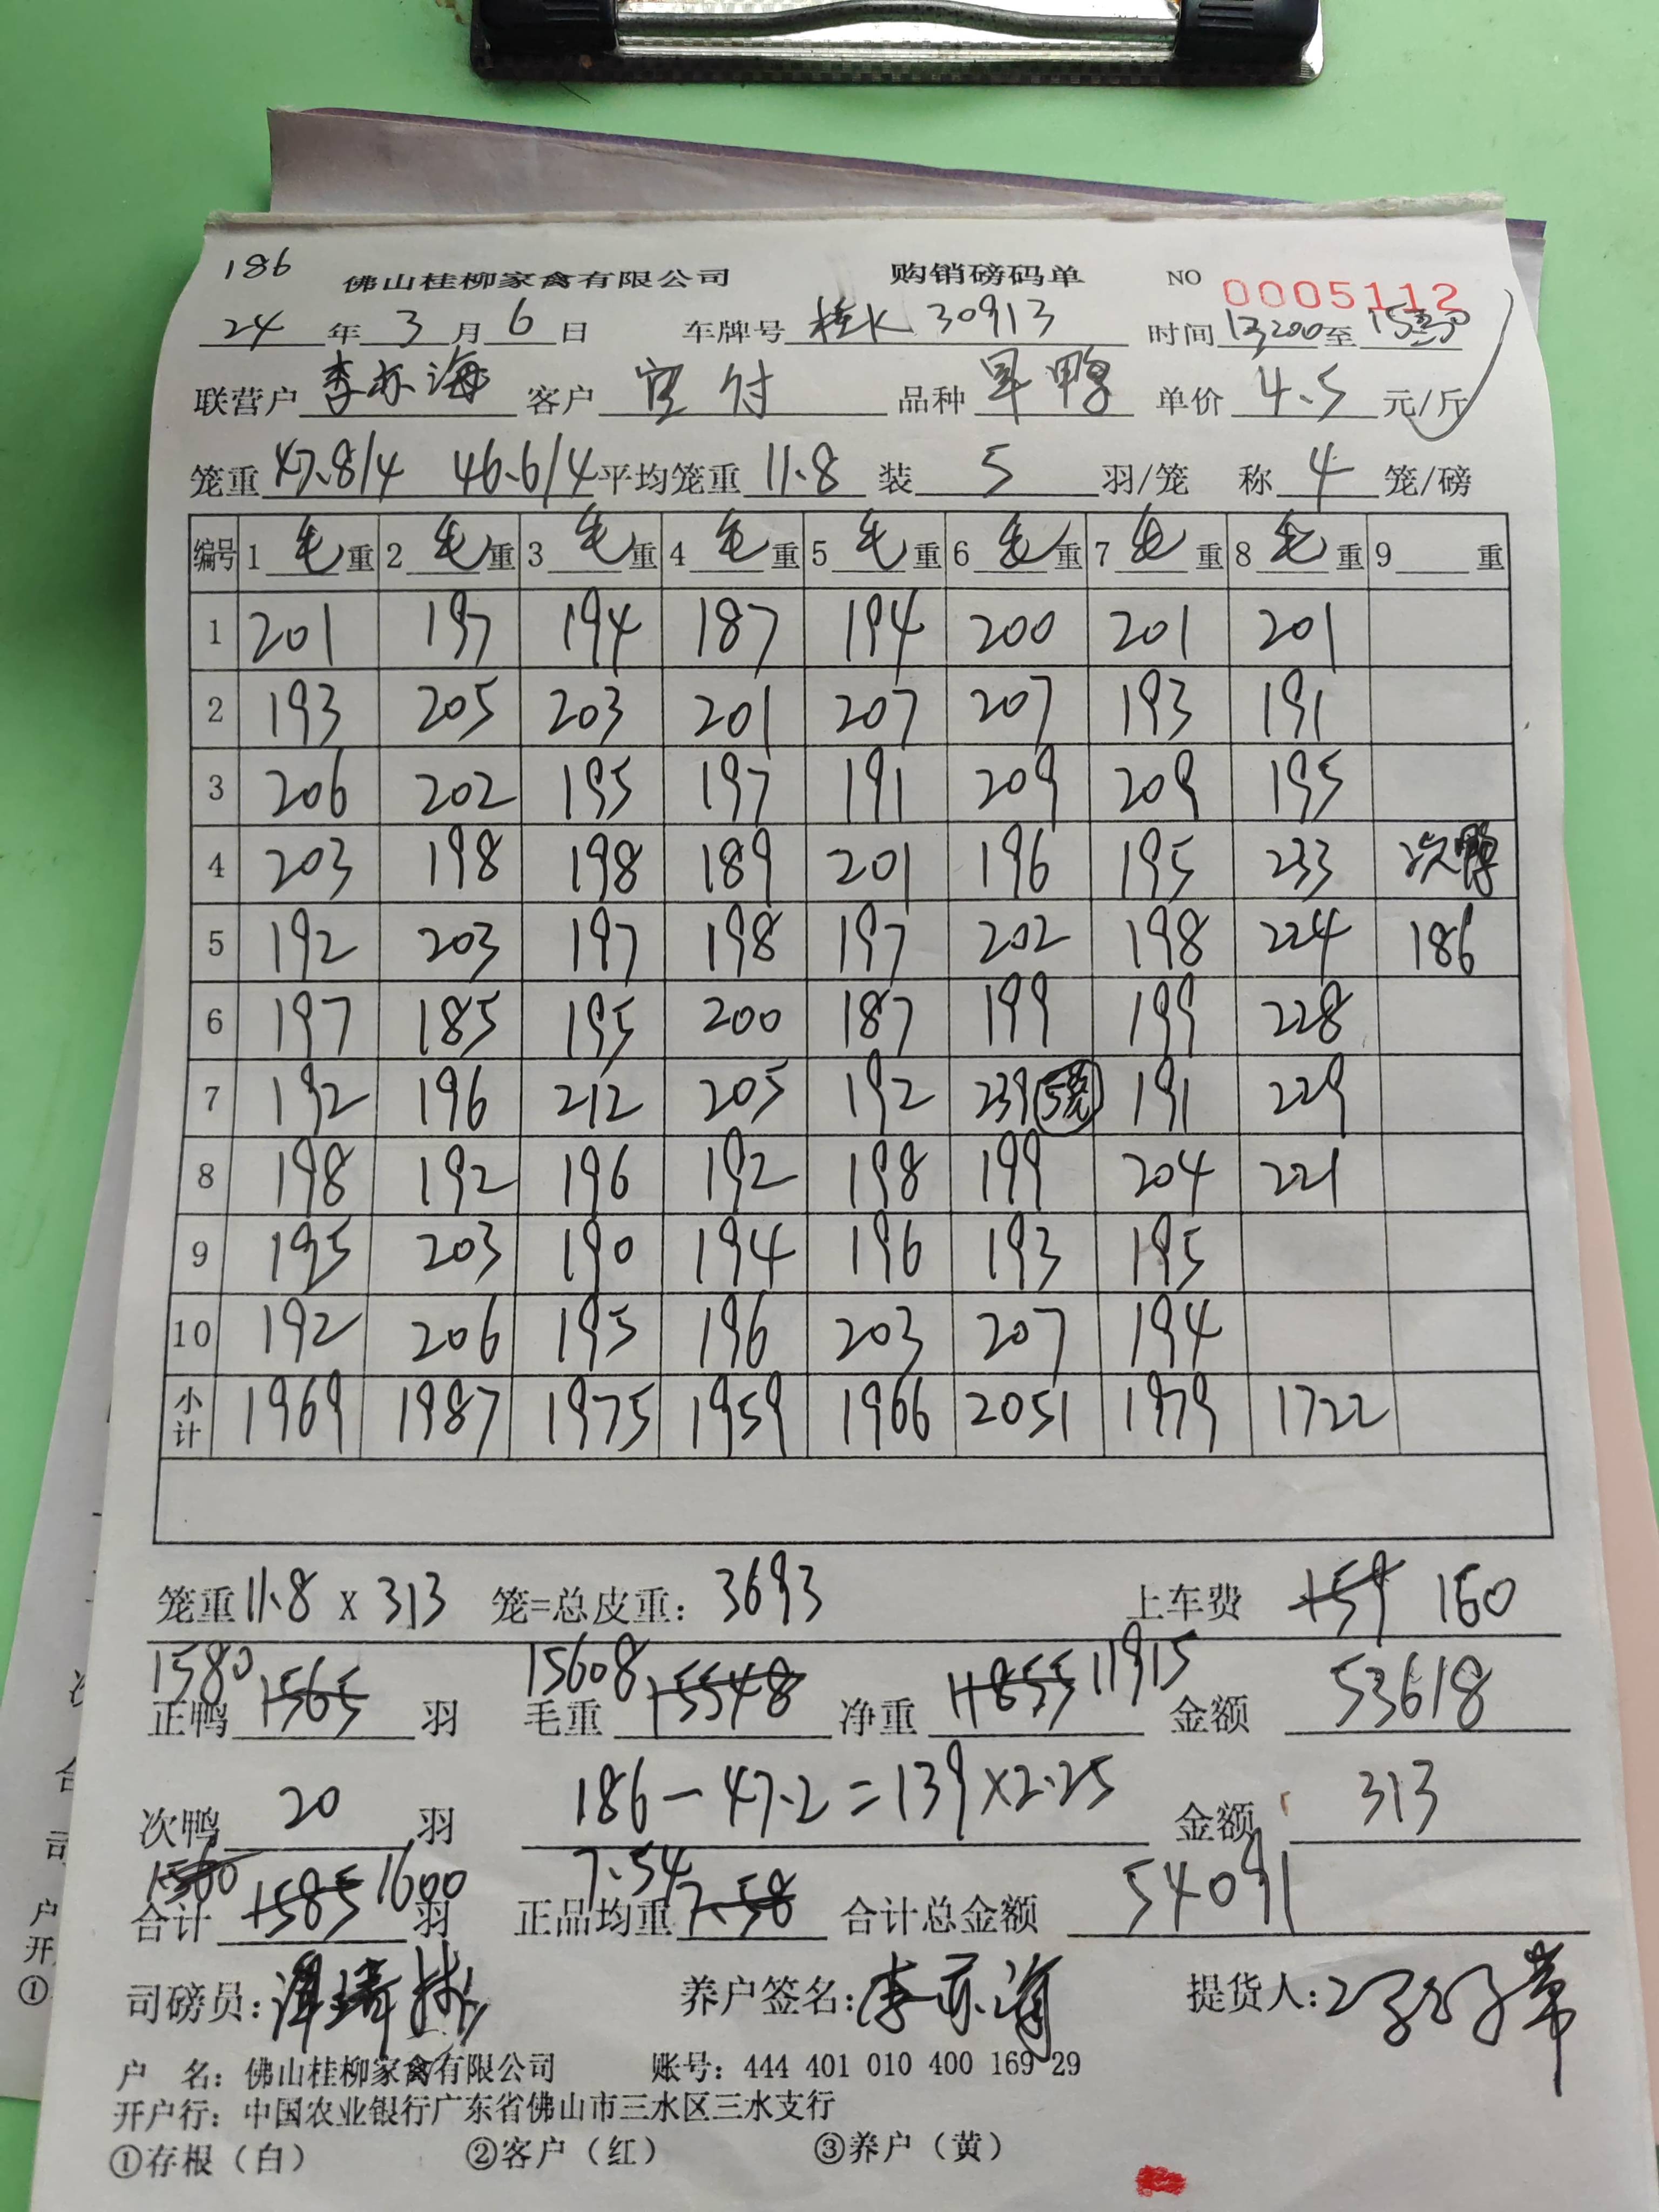 186
佛山桂柳家禽有限公司 购销磅码单 NO 0005112
24 年 3 月 6 日 车牌号 桂K 30913 时间 至
联营户 李亦海 客户 客户 品种 旱鸭 单价 4.5 元/斤
笼重 47.8/4 46.6/4 平均笼重 11.8 装 5 羽/笼 称 4 笼/磅
编号 1 毛 重 2 毛 重 3 毛 重 4 毛 重 5 毛 重 6 毛 重 7 毛 重 8 毛 重 9 重
1 201 197 194 187 194 200 201 201
2 193 205 203 201 207 207 193 191
3 206 202 195 197 191 209 209 195
4 203 198 198 189 201 196 195 233 次鸭
5 192 203 197 198 197 202 198 224 186
6 197 185 195 200 187 199 199 228
7 192 196 212 205 192 239 (5笼) 191 229
8 198 192 196 192 198 199 204 221
9 195 203 190 194 196 193 195
10 192 206 195 196 203 207 194
小计 1969 1987 1975 1959 1966 2051 1979 1722
笼重 11.8 x 313 笼=总皮重: 3693 上车费 159 160
正鸭 1580 1565 羽 毛重 15608 15548 净重 11855 11915 金额 53618
次鸭 20 羽 186-47.2=139×2.25 金额 313
合计 1560 1585 1600 羽 正品均重 7.54 7.58 合计总金额 54091
司磅员: 养户签名: 李亦海 提货人:
户 名: 佛山桂柳家禽有限公司 账号: 444 401 010 400 169 29
开户行: 中国农业银行广东省佛山市三水区三水支行
①存根（白） ②客户（红） ③养户（黄）